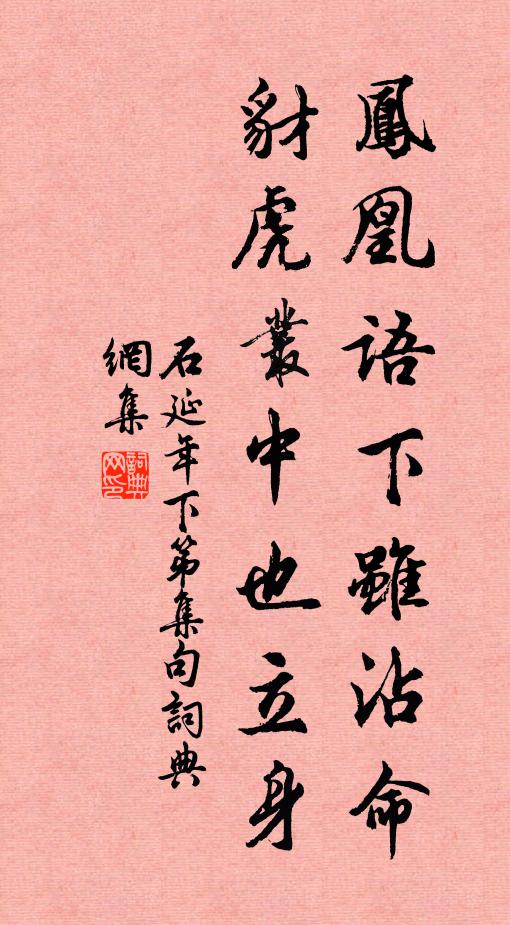 鳳凰語下雖沾命
豺虎叢中也立身
石延年下第集句詞典
網集
詞典網印